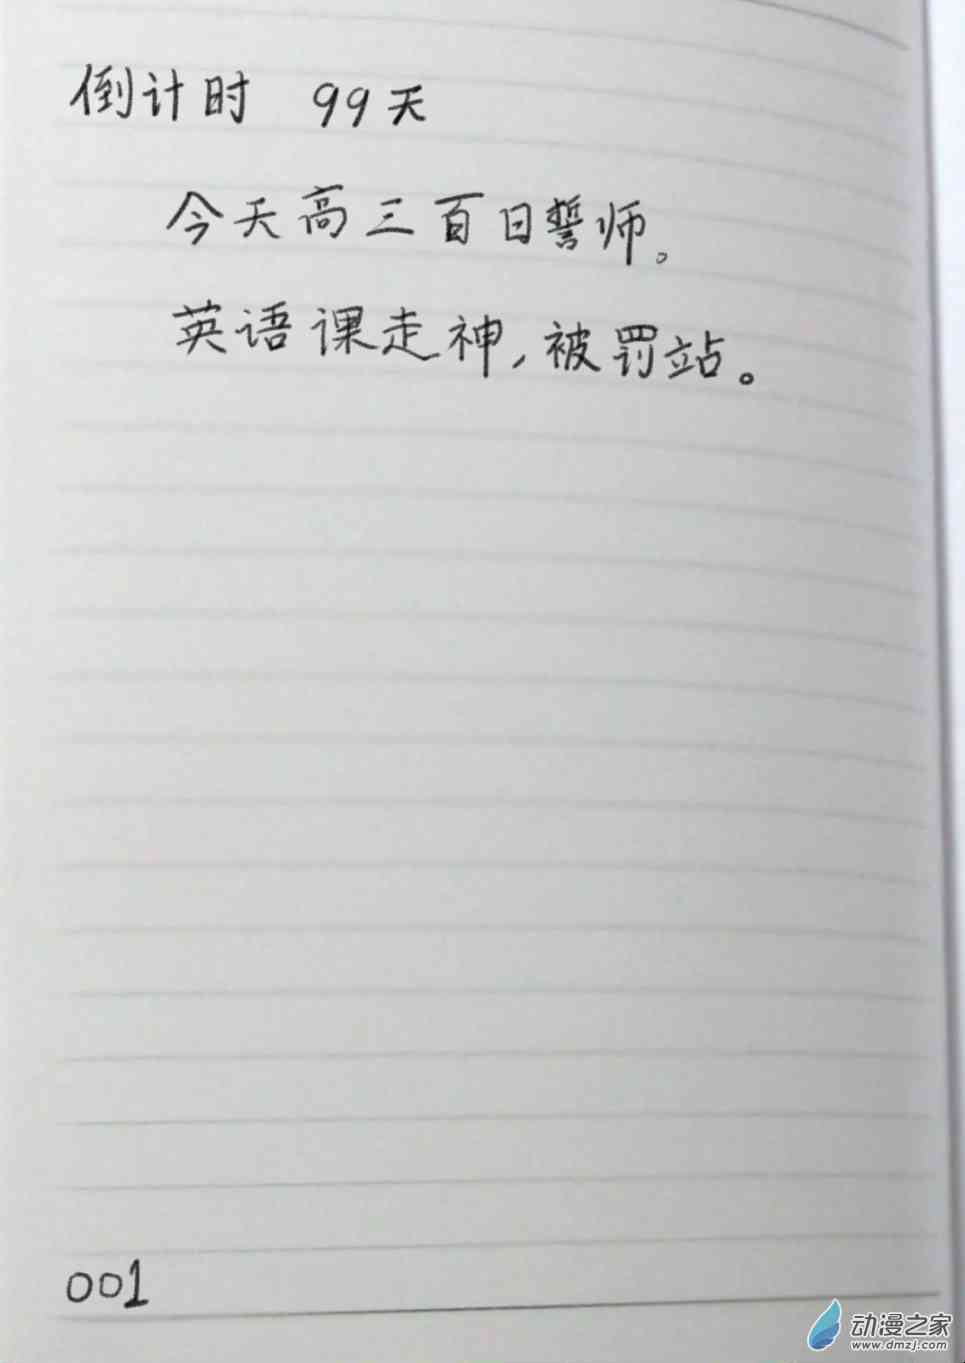 倒计时 99天
今天高三百日誓师。
英语课走神,被罚站。
001
动漫之家
www.dmzj.com